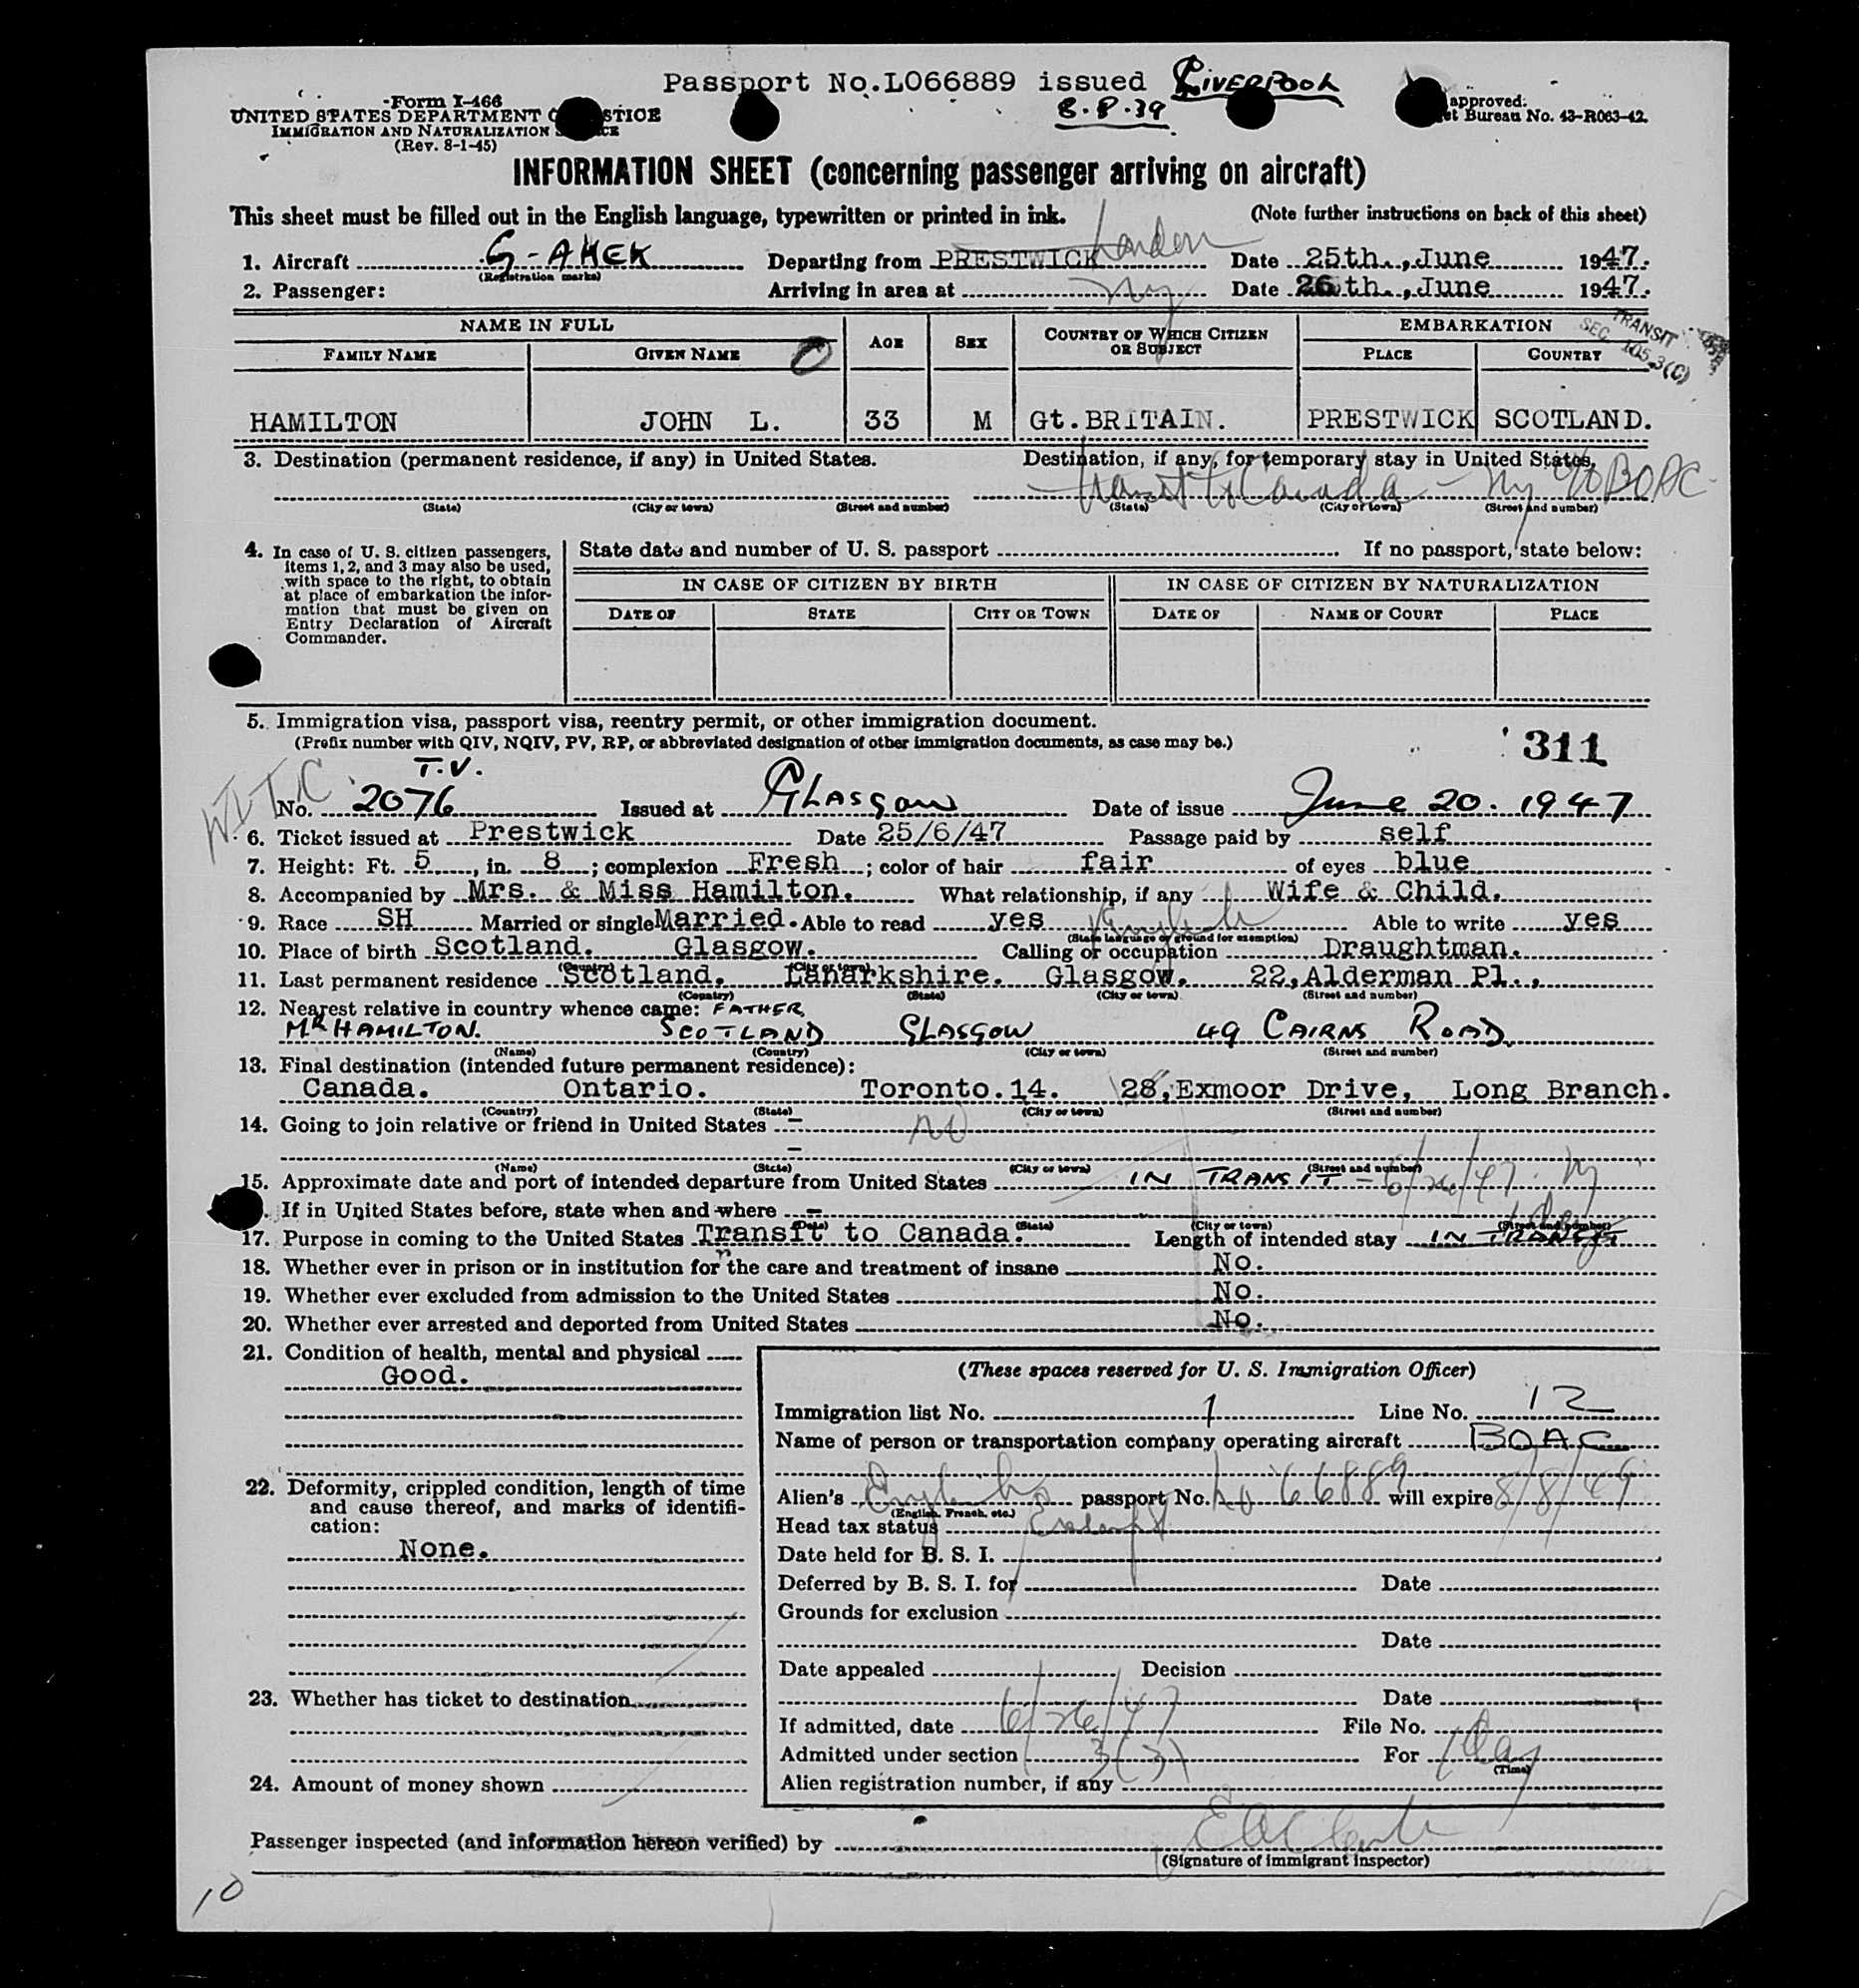 Passport No.L066889 issued LIVERPOOL
8.8.39
Form I-466
UNITED STATES DEPARTMENT
IMMIGRATION AND NATURALIZATION
(Rev. 8-1-45)
approved.
Bureau No. 43-R063-42.
INFORMATION SHEET (concerning passenger arriving on aircraft)
This sheet must be filled out in the English language, typewritten or printed in ink. (Note further instructions on back of this sheet)
1. Aircraft G-AHEK Departing from PRESTWICK London Date 25th.,June 1947.
(Registration marks)
2. Passenger: Arriving in area at NY Date 26th.,June 1947.
NAME IN FULL AGE SEX COUNTRY OF WHICH CITIZEN OR SUBJECT EMBARKATION
FAMILY NAME GIVEN NAME PLACE COUNTRY
TRANSIT
SEC. 105.3(C)
HAMILTON JOHN L. 33 M Gt.BRITAIN. PRESTWICK SCOTLAND.
3. Destination (permanent residence, if any) in United States. Destination, if any, for temporary stay in United States.
transit to Canada - NY c/o BOAC
(State) (City or town) (Street and number) (State) (City or town) (Street and number)
4. In case of U. S. citizen passengers, items 1, 2, and 3 may also be used, with space to the right, to obtain at place of embarkation the information that must be given on Entry Declaration of Aircraft Commander.
State date and number of U. S. passport If no passport, state below:
IN CASE OF CITIZEN BY BIRTH IN CASE OF CITIZEN BY NATURALIZATION
DATE OF STATE CITY OR TOWN DATE OF NAME OF COURT PLACE
5. Immigration visa, passport visa, reentry permit, or other immigration document.
(Prefix number with QIV, NQIV, PV, RP, or abbreviated designation of other immigration documents, as case may be.)
311
T.V.
No. 2076 Issued at Glasgow Date of issue June 20. 1947
6. Ticket issued at Prestwick Date 25/6/47 Passage paid by self
7. Height: Ft. 5, in. 8; complexion Fresh; color of hair fair of eyes blue
8. Accompanied by Mrs. & Miss Hamilton. What relationship, if any Wife & Child.
9. Race SH Married or single Married. Able to read yes English Able to write yes
(State language or ground for exemption)
10. Place of birth Scotland. Glasgow. Calling or occupation Draughtman.
(Country) (City or town)
11. Last permanent residence Scotland. Lanarkshire. Glasgow. 22,Alderman Pl.,
(Country) (State) (City or town) (Street and number)
12. Nearest relative in country whence came: FATHER,
MR HAMILTON. SCOTLAND GLASGOW 49 CAIRNS ROAD
(Name) (Country) (City or town) (Street and number)
13. Final destination (intended future permanent residence):
Canada. Ontario. Toronto.14. 28,Exmoor Drive, Long Branch.
(Country) (State) (City or town) (Street and number)
14. Going to join relative or friend in United States - no
-
(Name) (State) (City or town) (Street and number)
15. Approximate date and port of intended departure from United States IN TRANSIT - 6/26/47. NY
If in United States before, state when and where -
(Date) (State) (City or town) (Street and number)
17. Purpose in coming to the United States Transit to Canada. Length of intended stay IN TRANSIT 1 day
18. Whether ever in prison or in institution for the care and treatment of insane No.
19. Whether ever excluded from admission to the United States No.
20. Whether ever arrested and deported from United States No.
21. Condition of health, mental and physical
Good.
22. Deformity, crippled condition, length of time and cause thereof, and marks of identification:
None.
23. Whether has ticket to destination
24. Amount of money shown
(These spaces reserved for U. S. Immigration Officer)
Immigration list No. 1 Line No. 12
Name of person or transportation company operating aircraft BOAC
Alien's English passport No. L066889 will expire 8/8/49
(English, French, etc.)
Head tax status Exempt
Date held for B. S. I.
Deferred by B. S. I. for Date
Grounds for exclusion
Date
Date appealed Decision
Date
If admitted, date 6/26/47 File No.
Admitted under section 3(3) For 1 day
(Time)
Alien registration number, if any
Passenger inspected (and information hereon verified) by
(Signature of immigrant inspector)
10